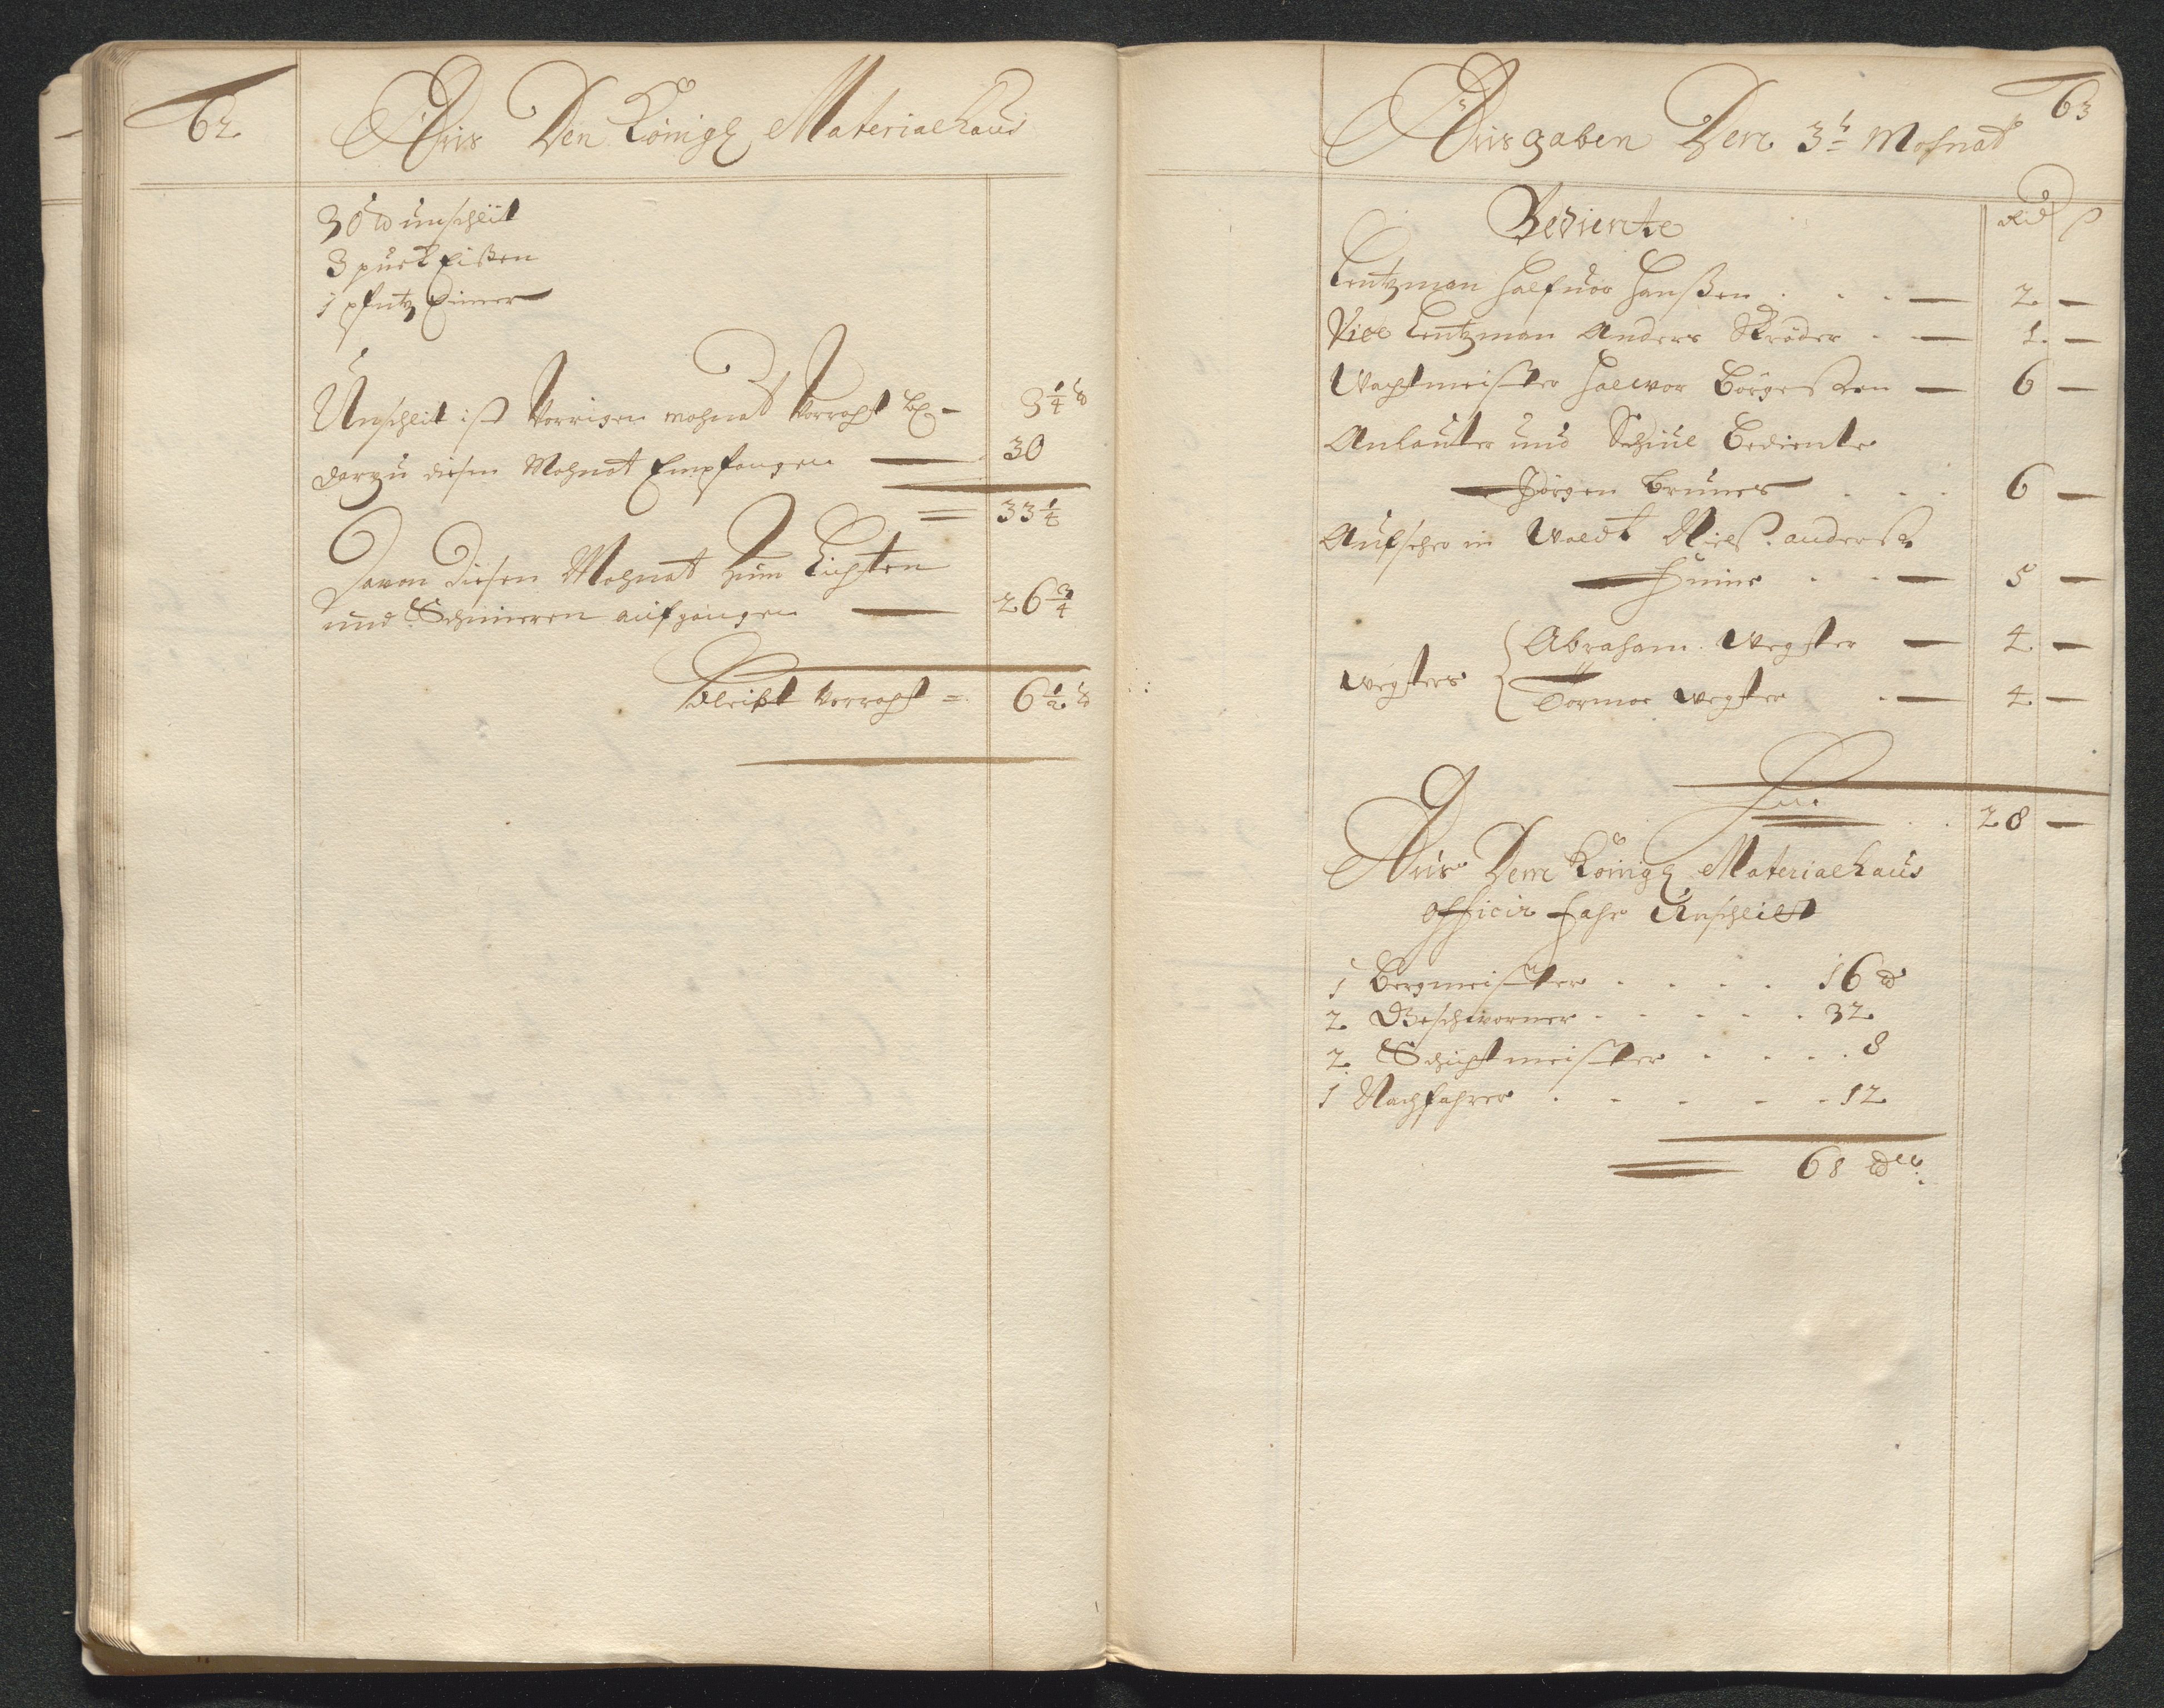 62.
Aus Den Königl Materialhaus
30 ℔ unschlit
3 puckeißen
1 pfütz Eimer
Unschlit ist Vorrigen mohnat Vorraht bl - 3 1/4 ℔
darzu diesen Mohnat Empfangen 30
33 1/4
Davon diesen Mohnat zum Lichten
und Schmieren aufgangen 26 3/4
bleibt Vorraht = 6 1/2 ℔
63
Ausgaben Den 3t Mohnat
Bediente Rd ß
Lentzman Halfuor Hanßen 2 —
Vice Lentzman Anders Schröder 1 —
Wachtmeister Halvor Börgeßen 6 —
Anlauter und Schuel Bediente
Jörgen Bruner 6 —
Aufseher in Waldt Nielß anderß
5 —
Wegsters Abraham Wegster 4 —
Tormoe wegster 4 —
28 —
Aus Dem Königl Materialhaus
officir fahr Unschlidt
1 Bergmeister 16 ℔
2 Geschworner 32
2 Schichtmeister 8
1 Nachfahrer 12
68 ℔